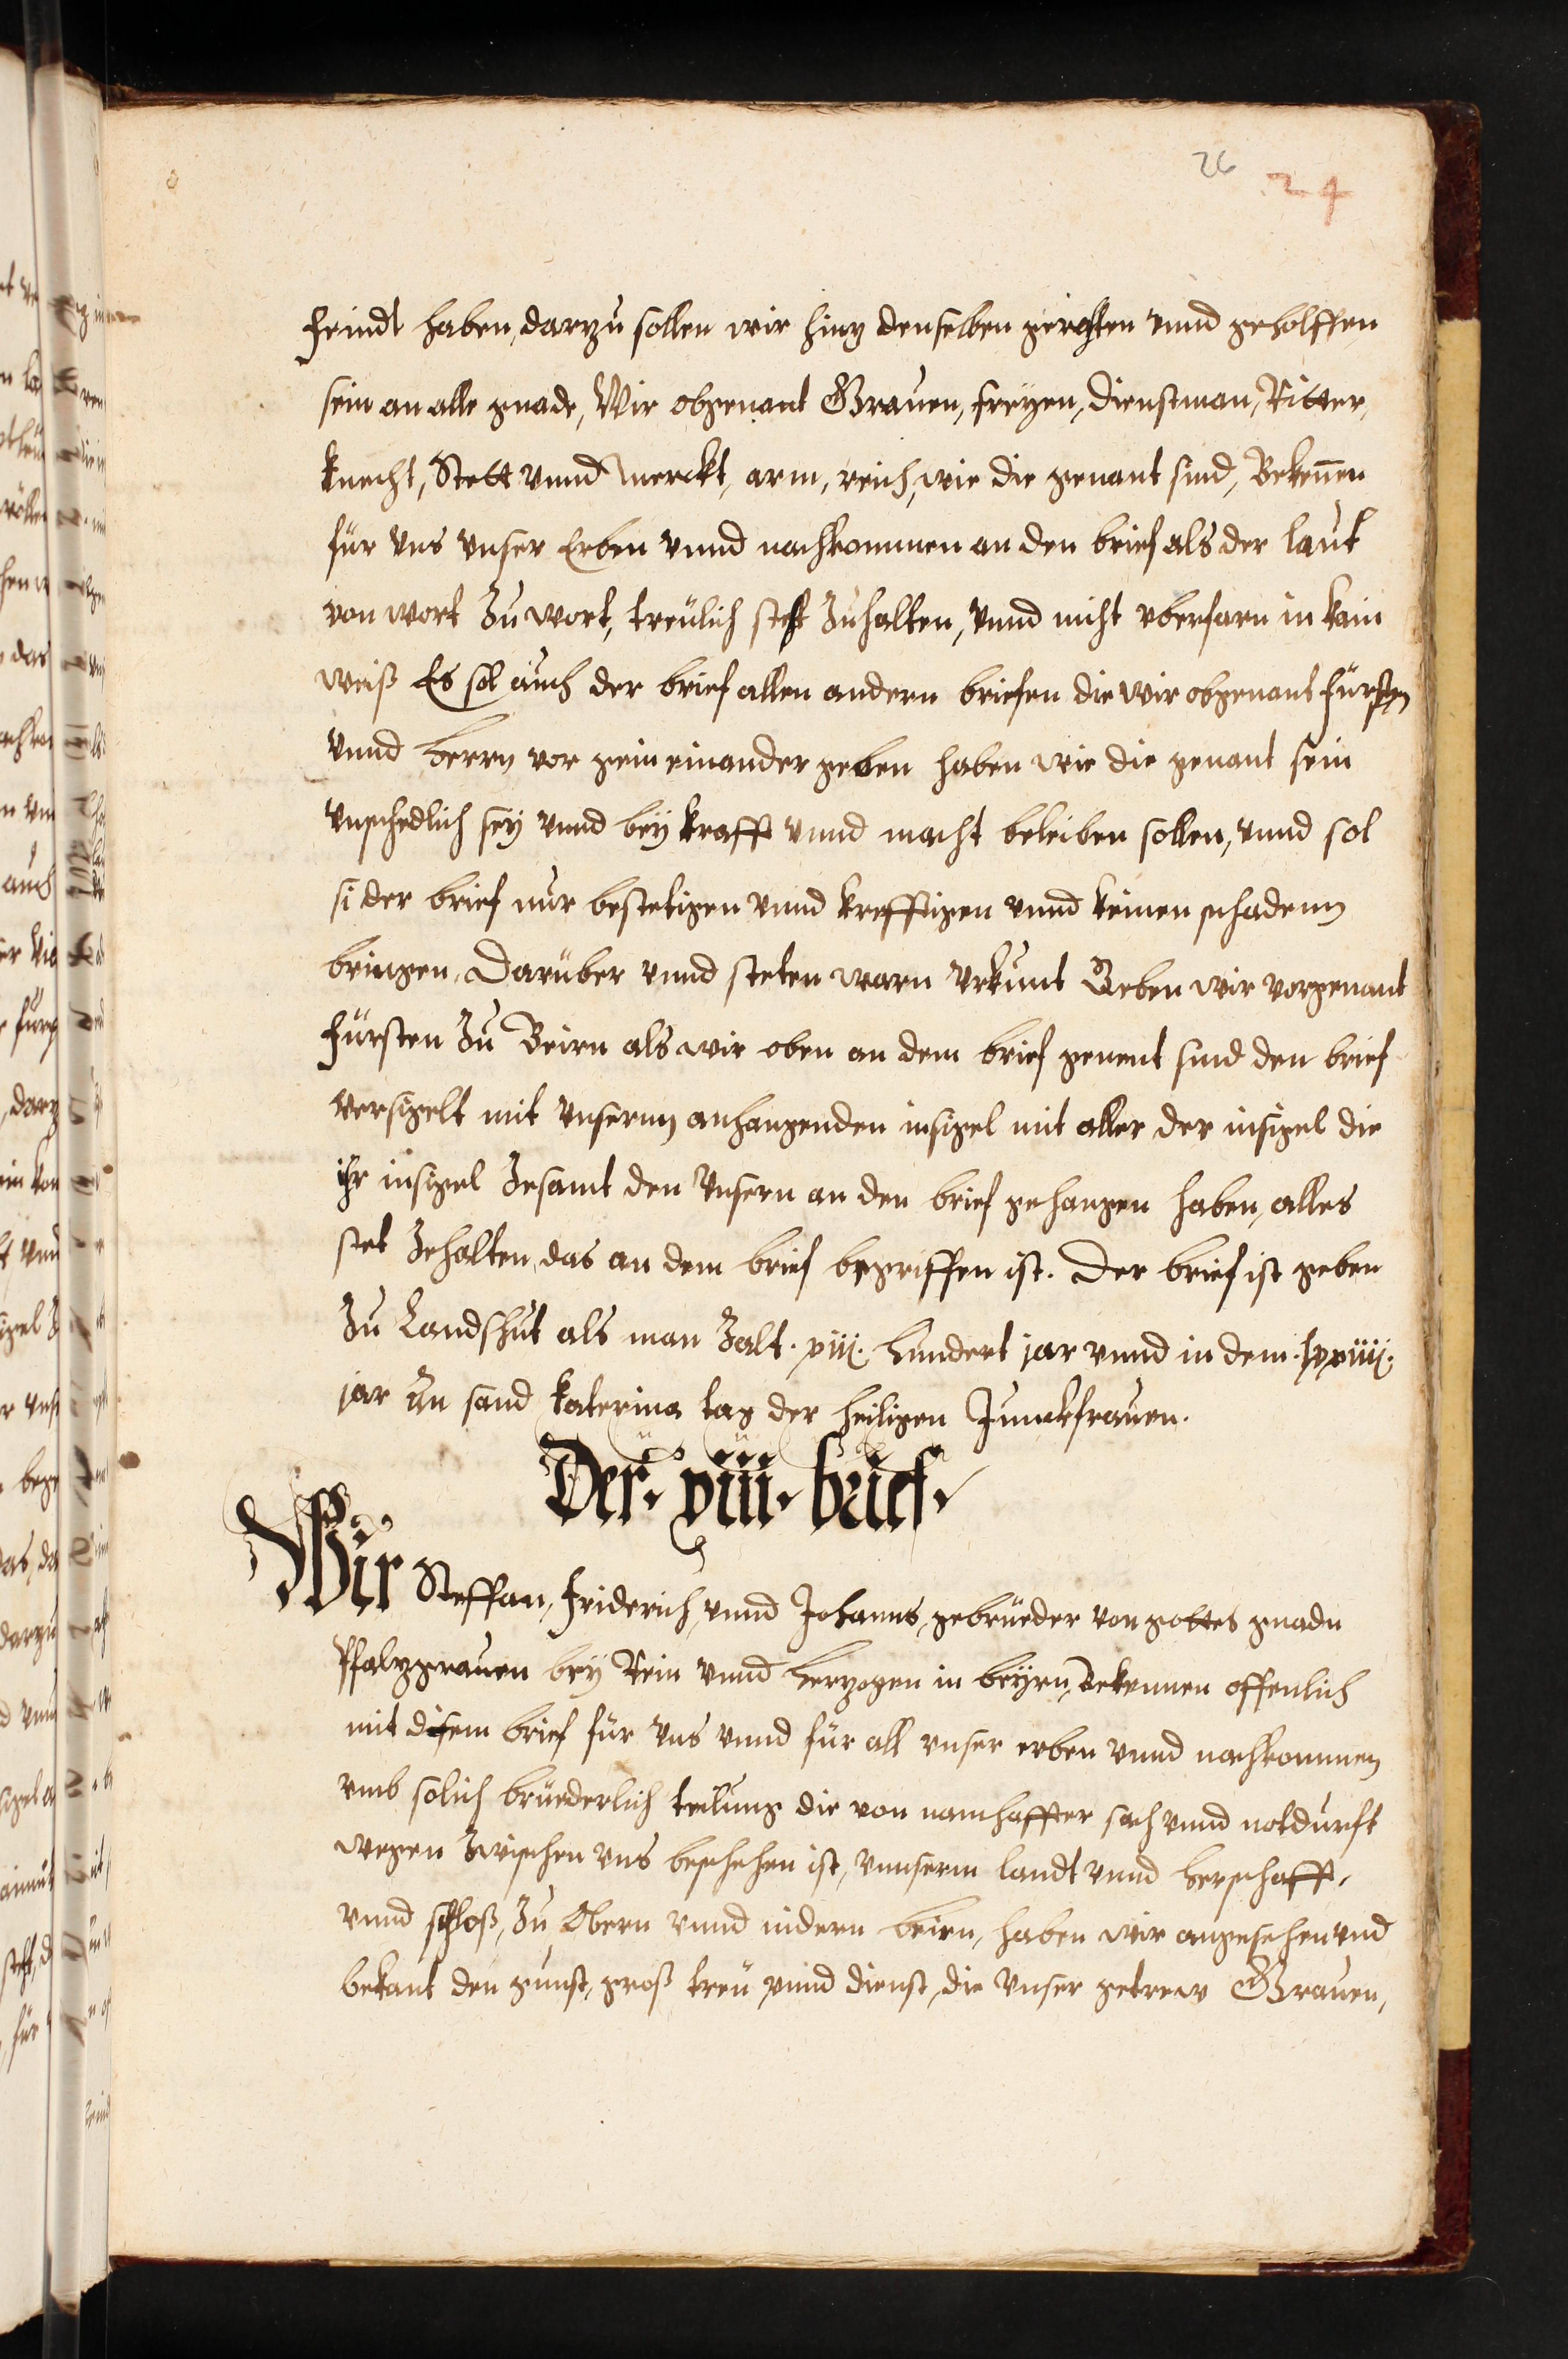 26 24
feindt haben, darzu sollen wir hinz denselben geraten vnnd geholffen
sein an alle gnade, Wir obgenant Grauen, freyen, dienstman, Ritter,
knecht, Stett vnnd Merckt, arm, reich, wie die genant sind, Bekennen
für vns vnser Erben vnnd nachkommen an den brief als der laut
von wort Zu wort, treulich stet Zuhalten, vnnd nicht vberfarn in kain
weiß Es sol auch der brief allen andern briefen die wir obgenant fürsten
vnnd herrn vor gein einander geben haben wie die genant sein
vnschedlich sey vnnd bey krafft vnnd macht beleiben sollen, vnnd sol
si der brief nur bestetigen vnnd krefftigen vnnd keinen schadenn
bringen, Darüber vnnd steten warn vrkunt Geben wir vorgenant
fürsten Zu Beirn als wir oben an dem brief genent sind den brief
versigelt mit vnsernn anhangenden insigel mit aller der insigel die
ihr insigel Zesamt den vnsern an den brief gehangen haben, alles
stet Zehalten, das an dem brief begriffen ist. Der brief ist geben
Zu Landshut als man Zalt. xiij. hundert jar vnnd in dem. lxxiiij.
jar An sand Katerina tag der heiligen Junckfrauen.
Der. viii. brief.
Wir Steffan, Friderich, vnnd Johanns, gebrueder von gottes gnadn
Pfalzgrauen bey Rein vnnd herzogen in beyrn, Bekennen offenlich
mit disem brief für vns vnnd für all vnser erben vnnd nachkommen
vmb solich brüederlich teilung die von namhaffter sach vnnd notdurft
wegen Zwischen vns beschehen ist, vnnserm landt vnnd herschafft,
vnnd schloß, Zu Obern vnnd nidern beirn, haben wir angesehen vnd
bekant den gunst, groß treu vnnd dienst, die vnser getrew Grauen,